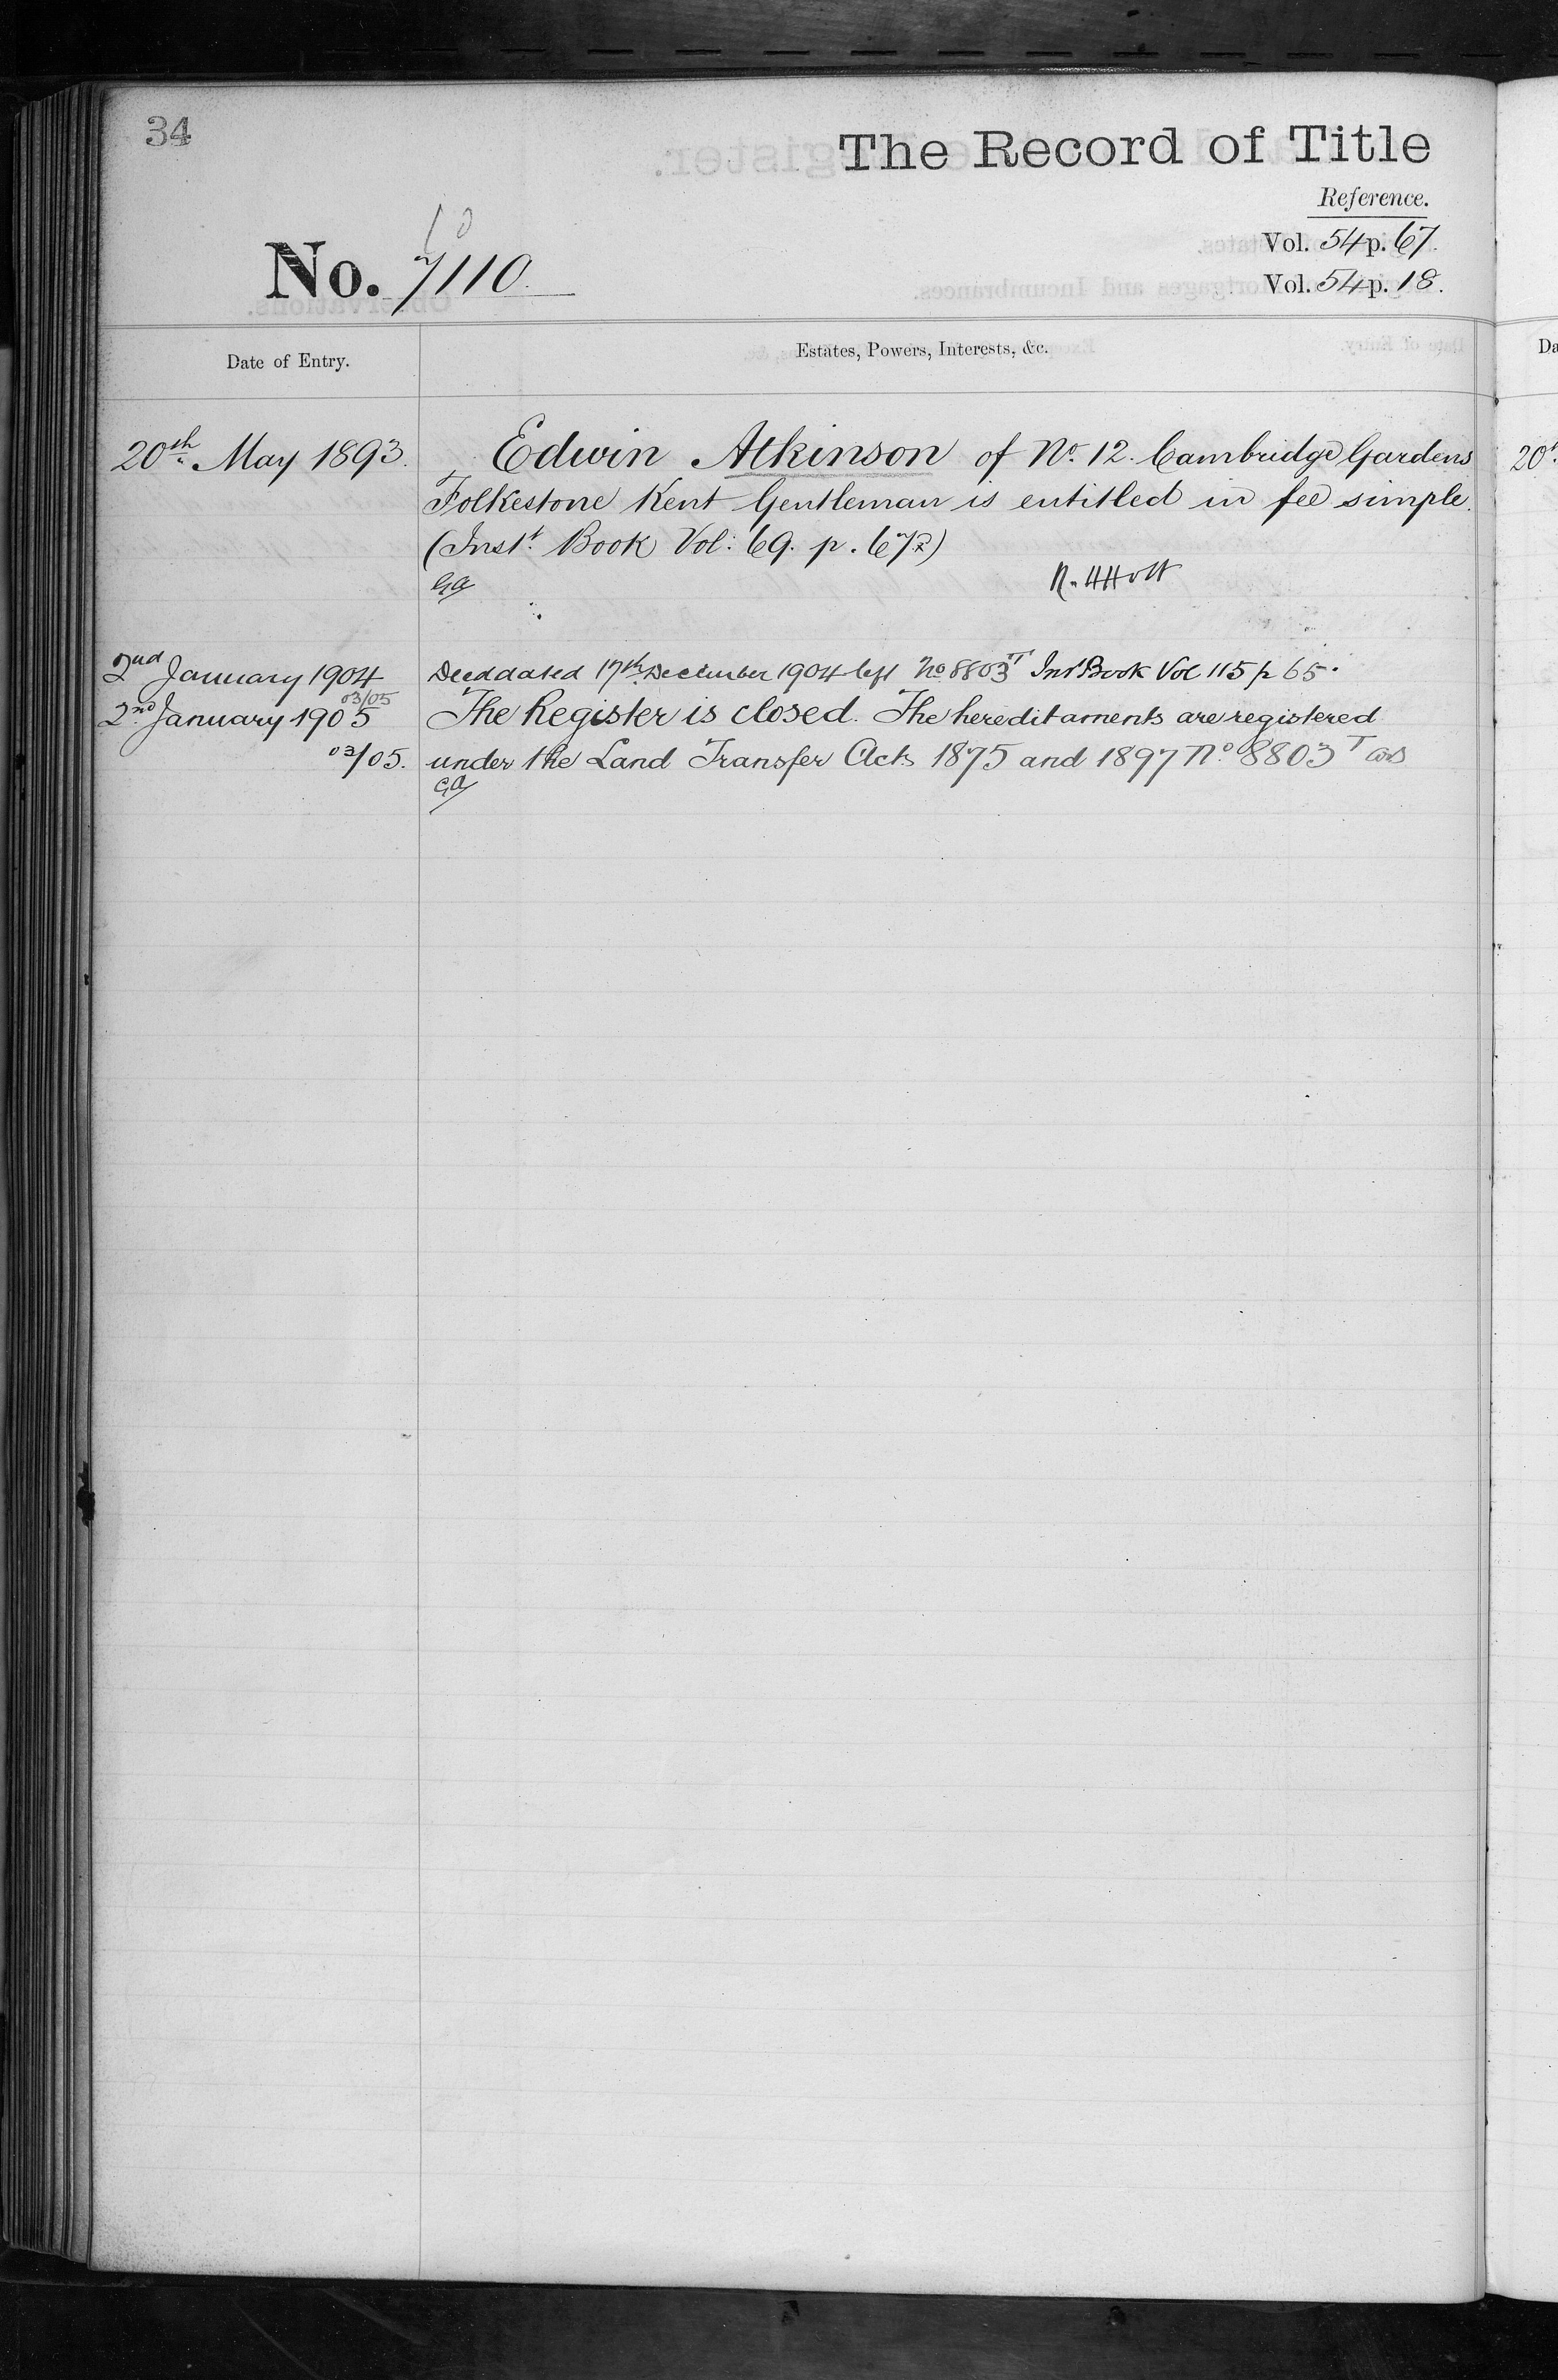 34
The Record of Title
Reference.
Vol. 54 p. 67.
10
No. 7110.
Vol. 54 p. 18.
Date of Entry.
Estates, Powers, Interests, &c.
20th May 1893.
Edwin Atkinson of No. 12. Cambridge Gardens
Folkestone Kent Gentleman is entitled in fee simple.
(Inst. Book Vol: 69. p. 67)
GA
2nd January 1904
Deed dated 17th December 1904 left No 8803T Inst Book Vol 115 p 65.
03/05
2nd January 1905
The Register is closed. The hereditaments are registered
03/05.
under the Land Transfer Acts 1875 and 1897 No. 8803T
GA
Da
20